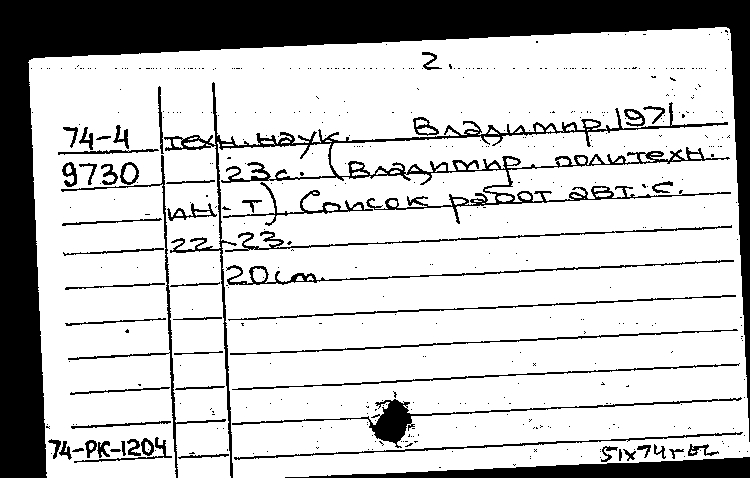 2.
74-4 техн. наук. Владимир, 1971.
9730 23с. (Владимир. политехн.
ин-т). Список работ авт.: с.
22-23.
20cm.
74-РК-1204